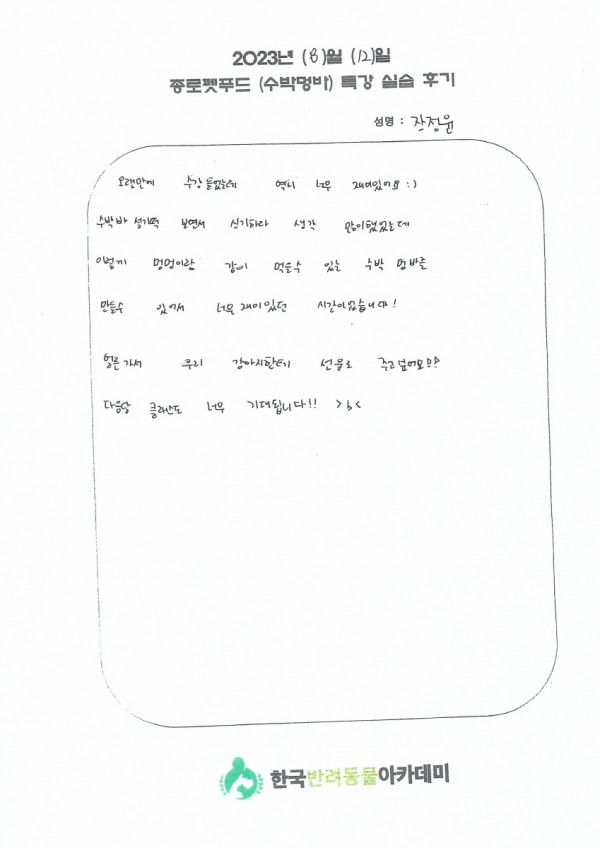 2023년 (8)월 (12)일
종로펫푸드 (수박멍바) 특강 실습 후기
성명 : 장정윤
오랜만에 수강 들었는데 역시 너무 재미있어요 :)
수박바 설기떡 보면서 신기하다 생각 많이했었는데
이렇게 멍멍이랑 같이 먹을수 있는 수박 멍바를
만들수 있어서 너무 재미있던 시간이었습니다!
얼른가서 우리 강아지한테 선물로 주고싶어요
다음달 클래스도 너무 기대됩니다!! >b<
한국반려동물아카데미